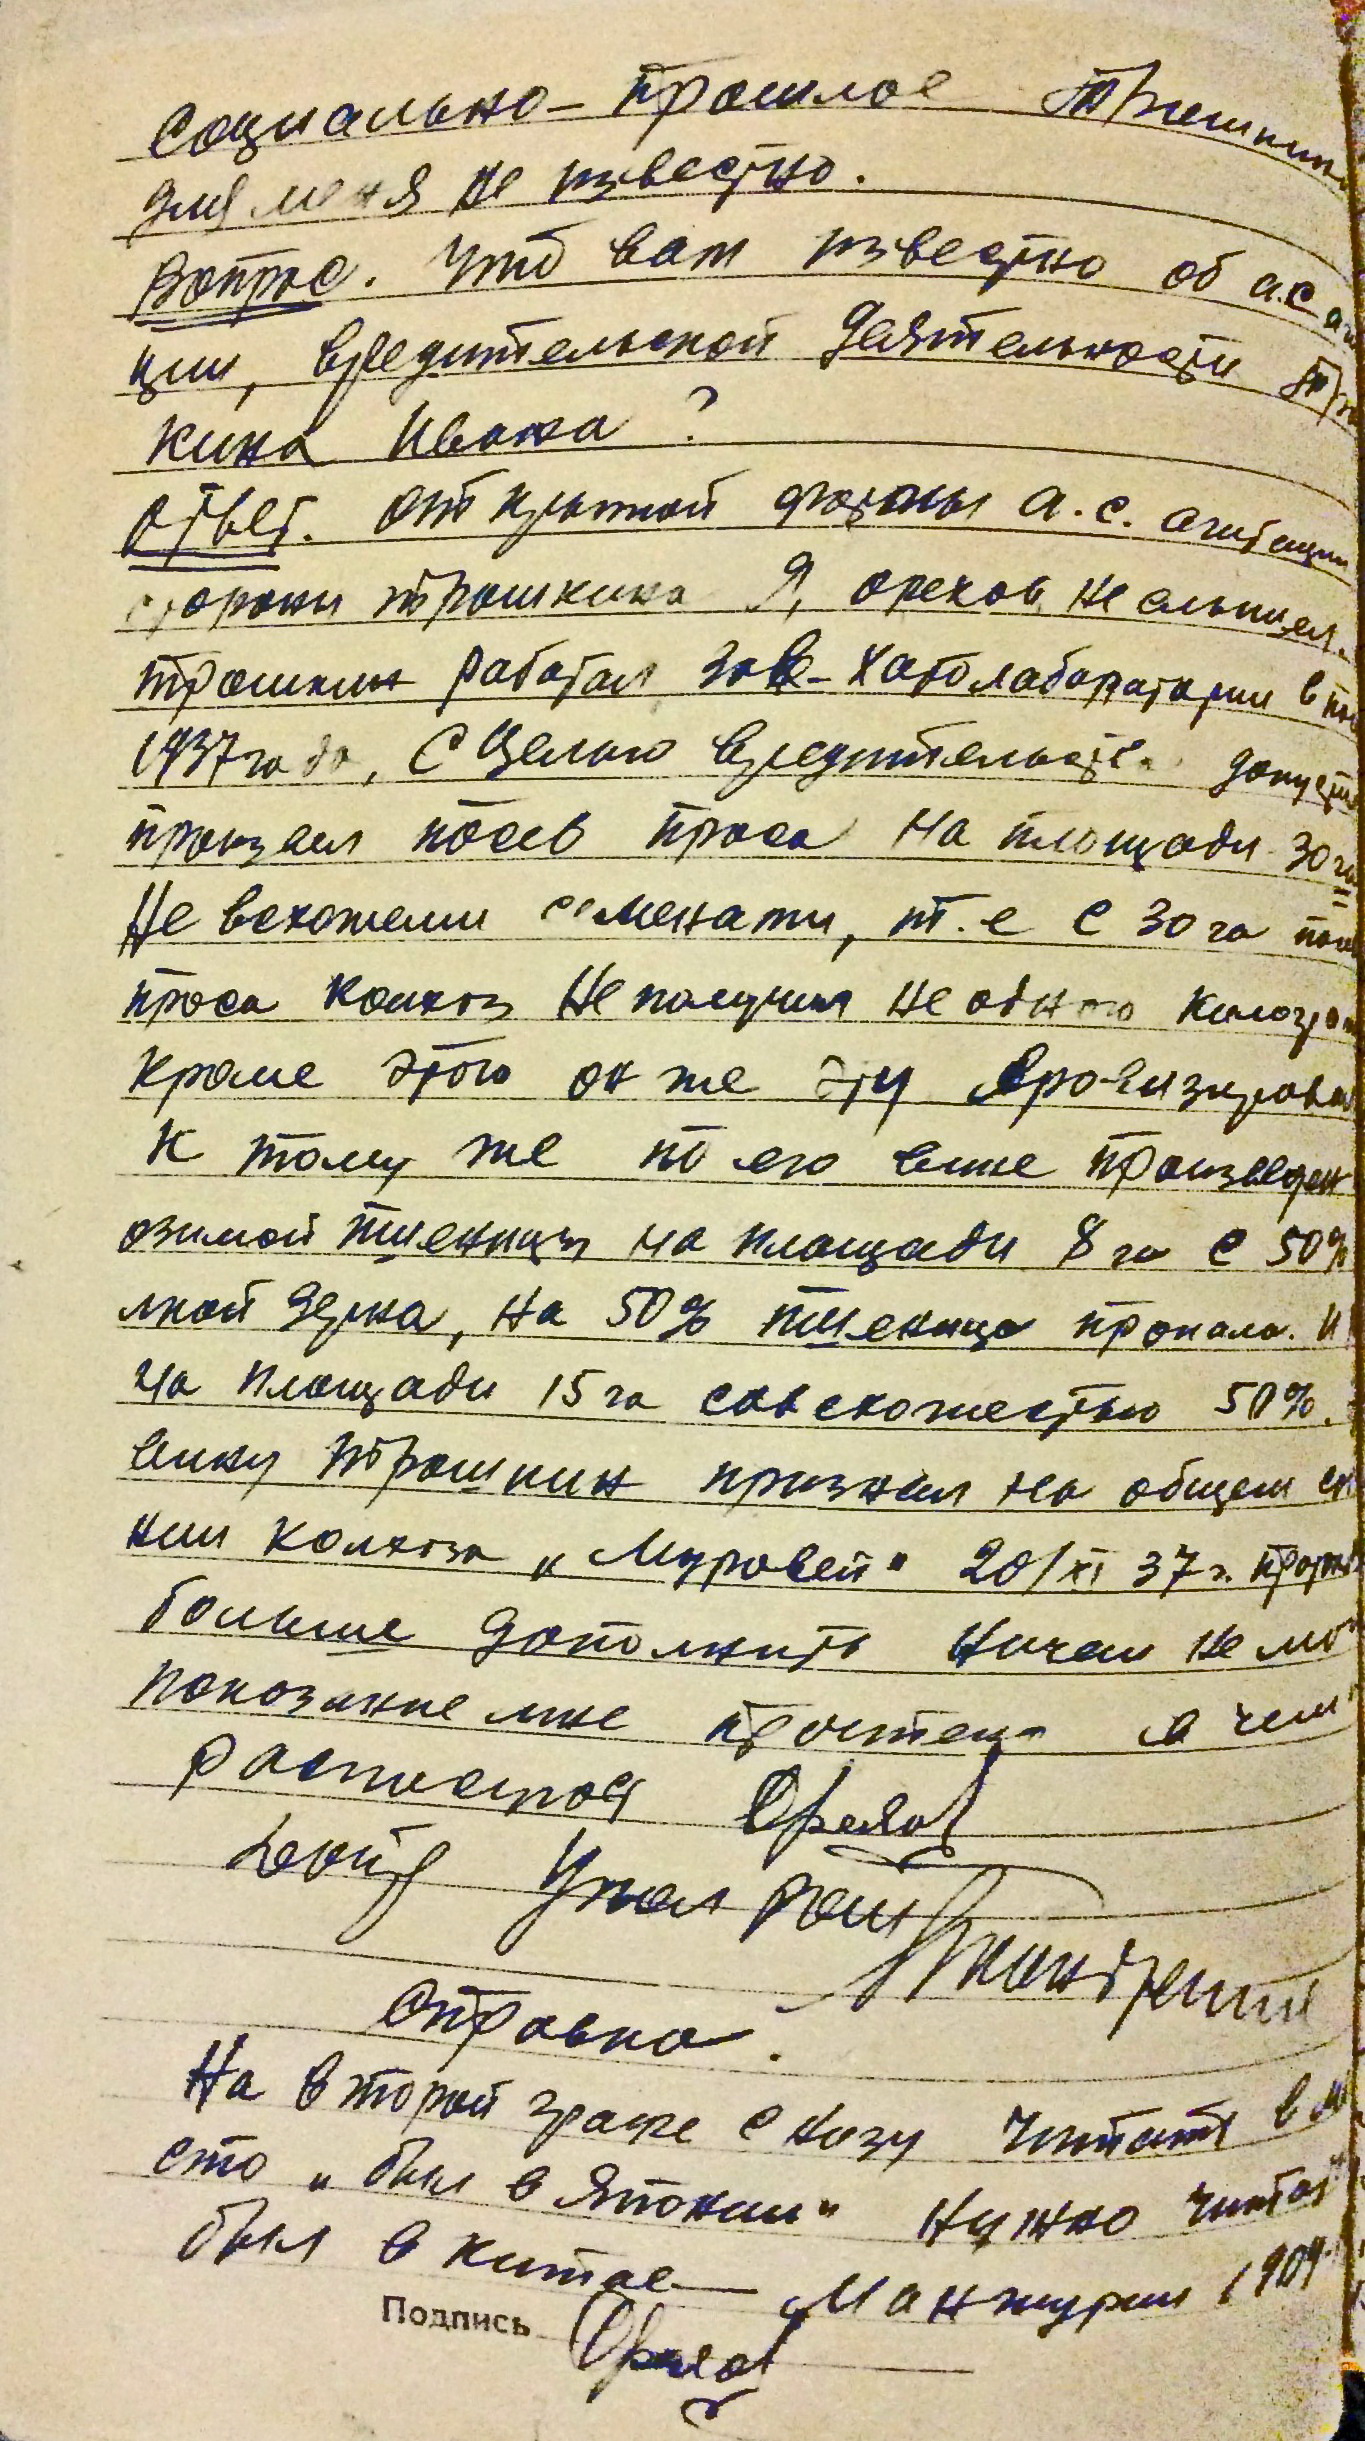 Социально-прошлое Трошкина
для меня не известно.
Вопрос. Что вам известно об а.с аги
ции, вредительской деятельности Трош
кина Ивана?
Ответ. Открытной формы а.с. агитации
стороны Трошкина Я, Орехов, не слышал.
Трошкин работал зав-Хатолабаратории в
1937 года, с целью вредительства допустил
произвел посев проса на площади 30 га
не всхожеми семенами, т.е с 30 га
проса колхоз не получил не одного килограм
кроме этого он же эту яровизировал
К тому же по его вине произведен
озимой пшеницы на площади 8 га с 50%
лной зерна, на 50% пшеница пропала. И
на площади 15 га сов схожестью 50%.
вину Трошкин признал на общем
нии колхоза „Муровей" 20/XI 37 г.
больше дополнить ничем не мо
показание мне прочтено в чем
распиской Орехов
Справка.
На второй граже с низу читать вм
сто „был в Японии" нужно читать
был в китае — Манжурии 1904
Подпись Орехов